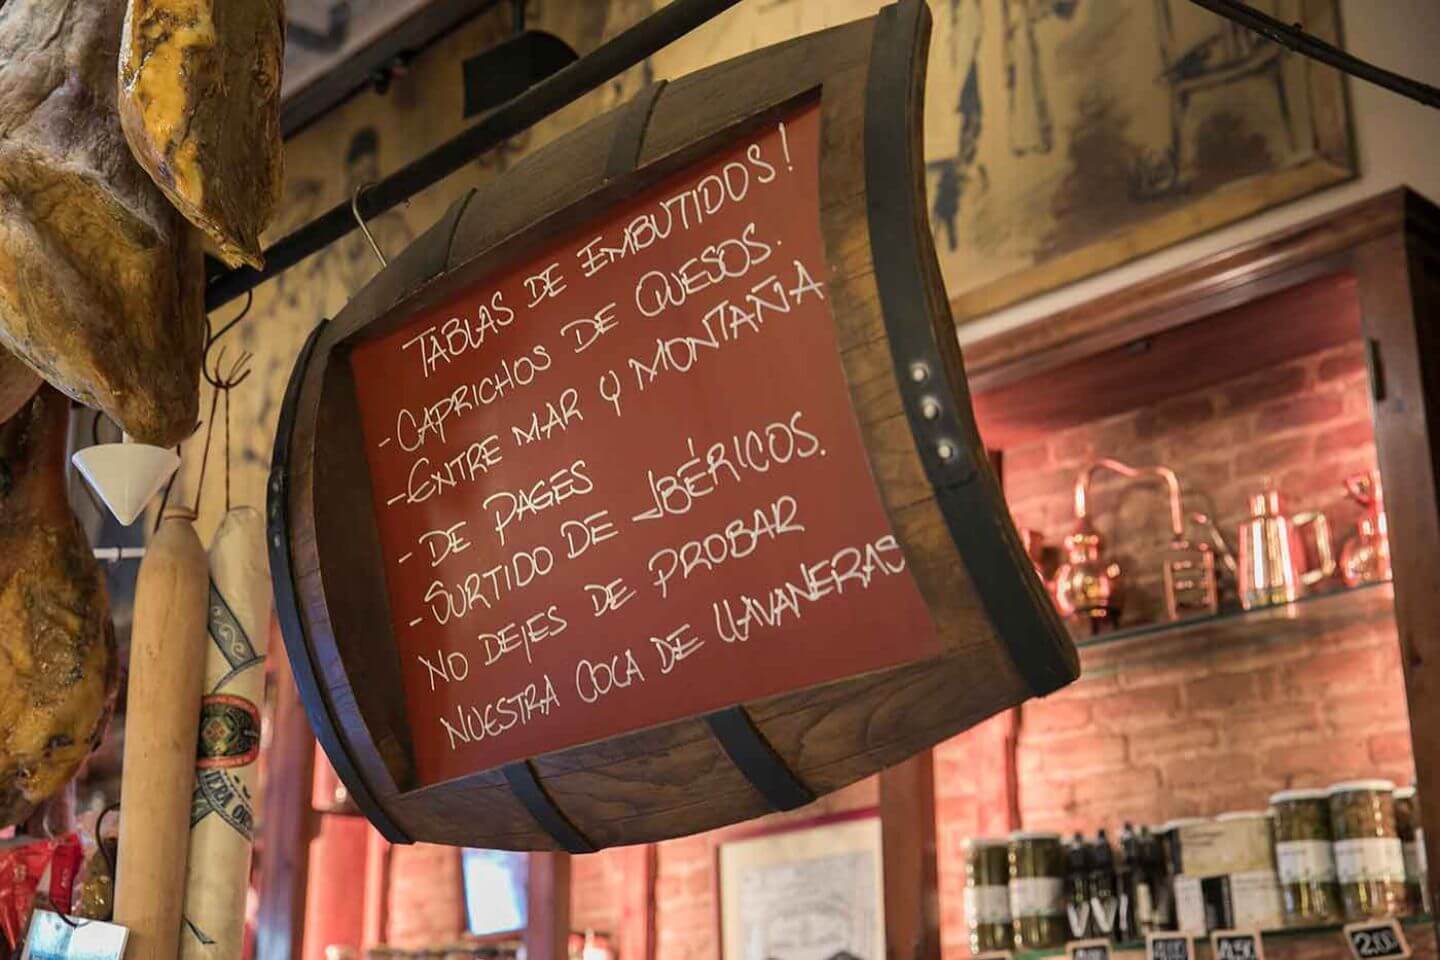 TABLAS DE EMBUTIDOS!
- CAPRICHOS DE QUESOS.
- ENTRE MAR Y MONTAÑA
- DE PAGES
- SURTIDO DE IBÉRICOS.
NO DEJES DE PROBAR
NUESTRA COCA DE LLAVANERAS
2.0